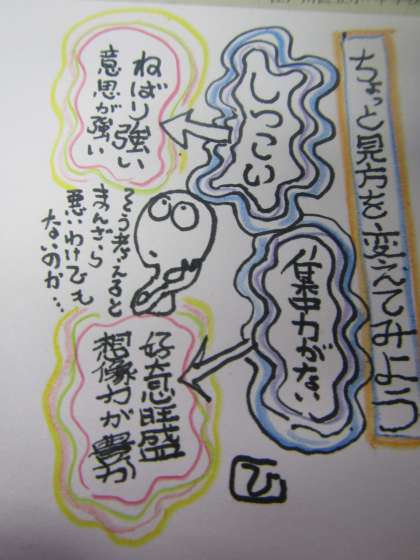 ちょっと見方を変えてみよう
しつこい
ねばり強い
意思が強い
集中力がない
好奇心旺盛
想像力が豊か
そう考えると
まんざら
悪いわけでも
ないのか…
ひ